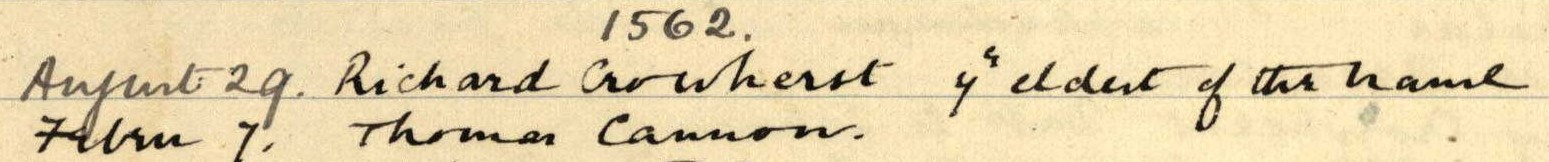 1562.
August 29. Richard Crowherst yᵉ eldest of the name
Febru 7. Thomas Cannon.